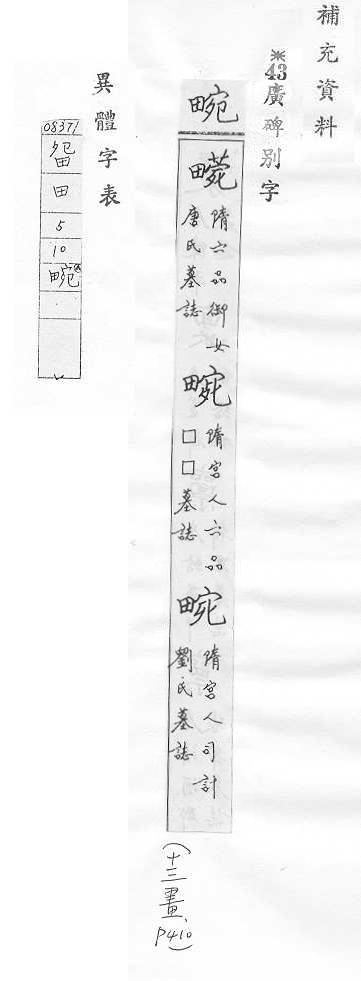 補充資料
※43廣碑別字
畹
隋六品御女
唐氏墓誌
隋宮人六品
□□墓誌
隋宮人司計
劉氏墓誌
(十三畫、P410)
異體字表
08371
田
5
10
畹